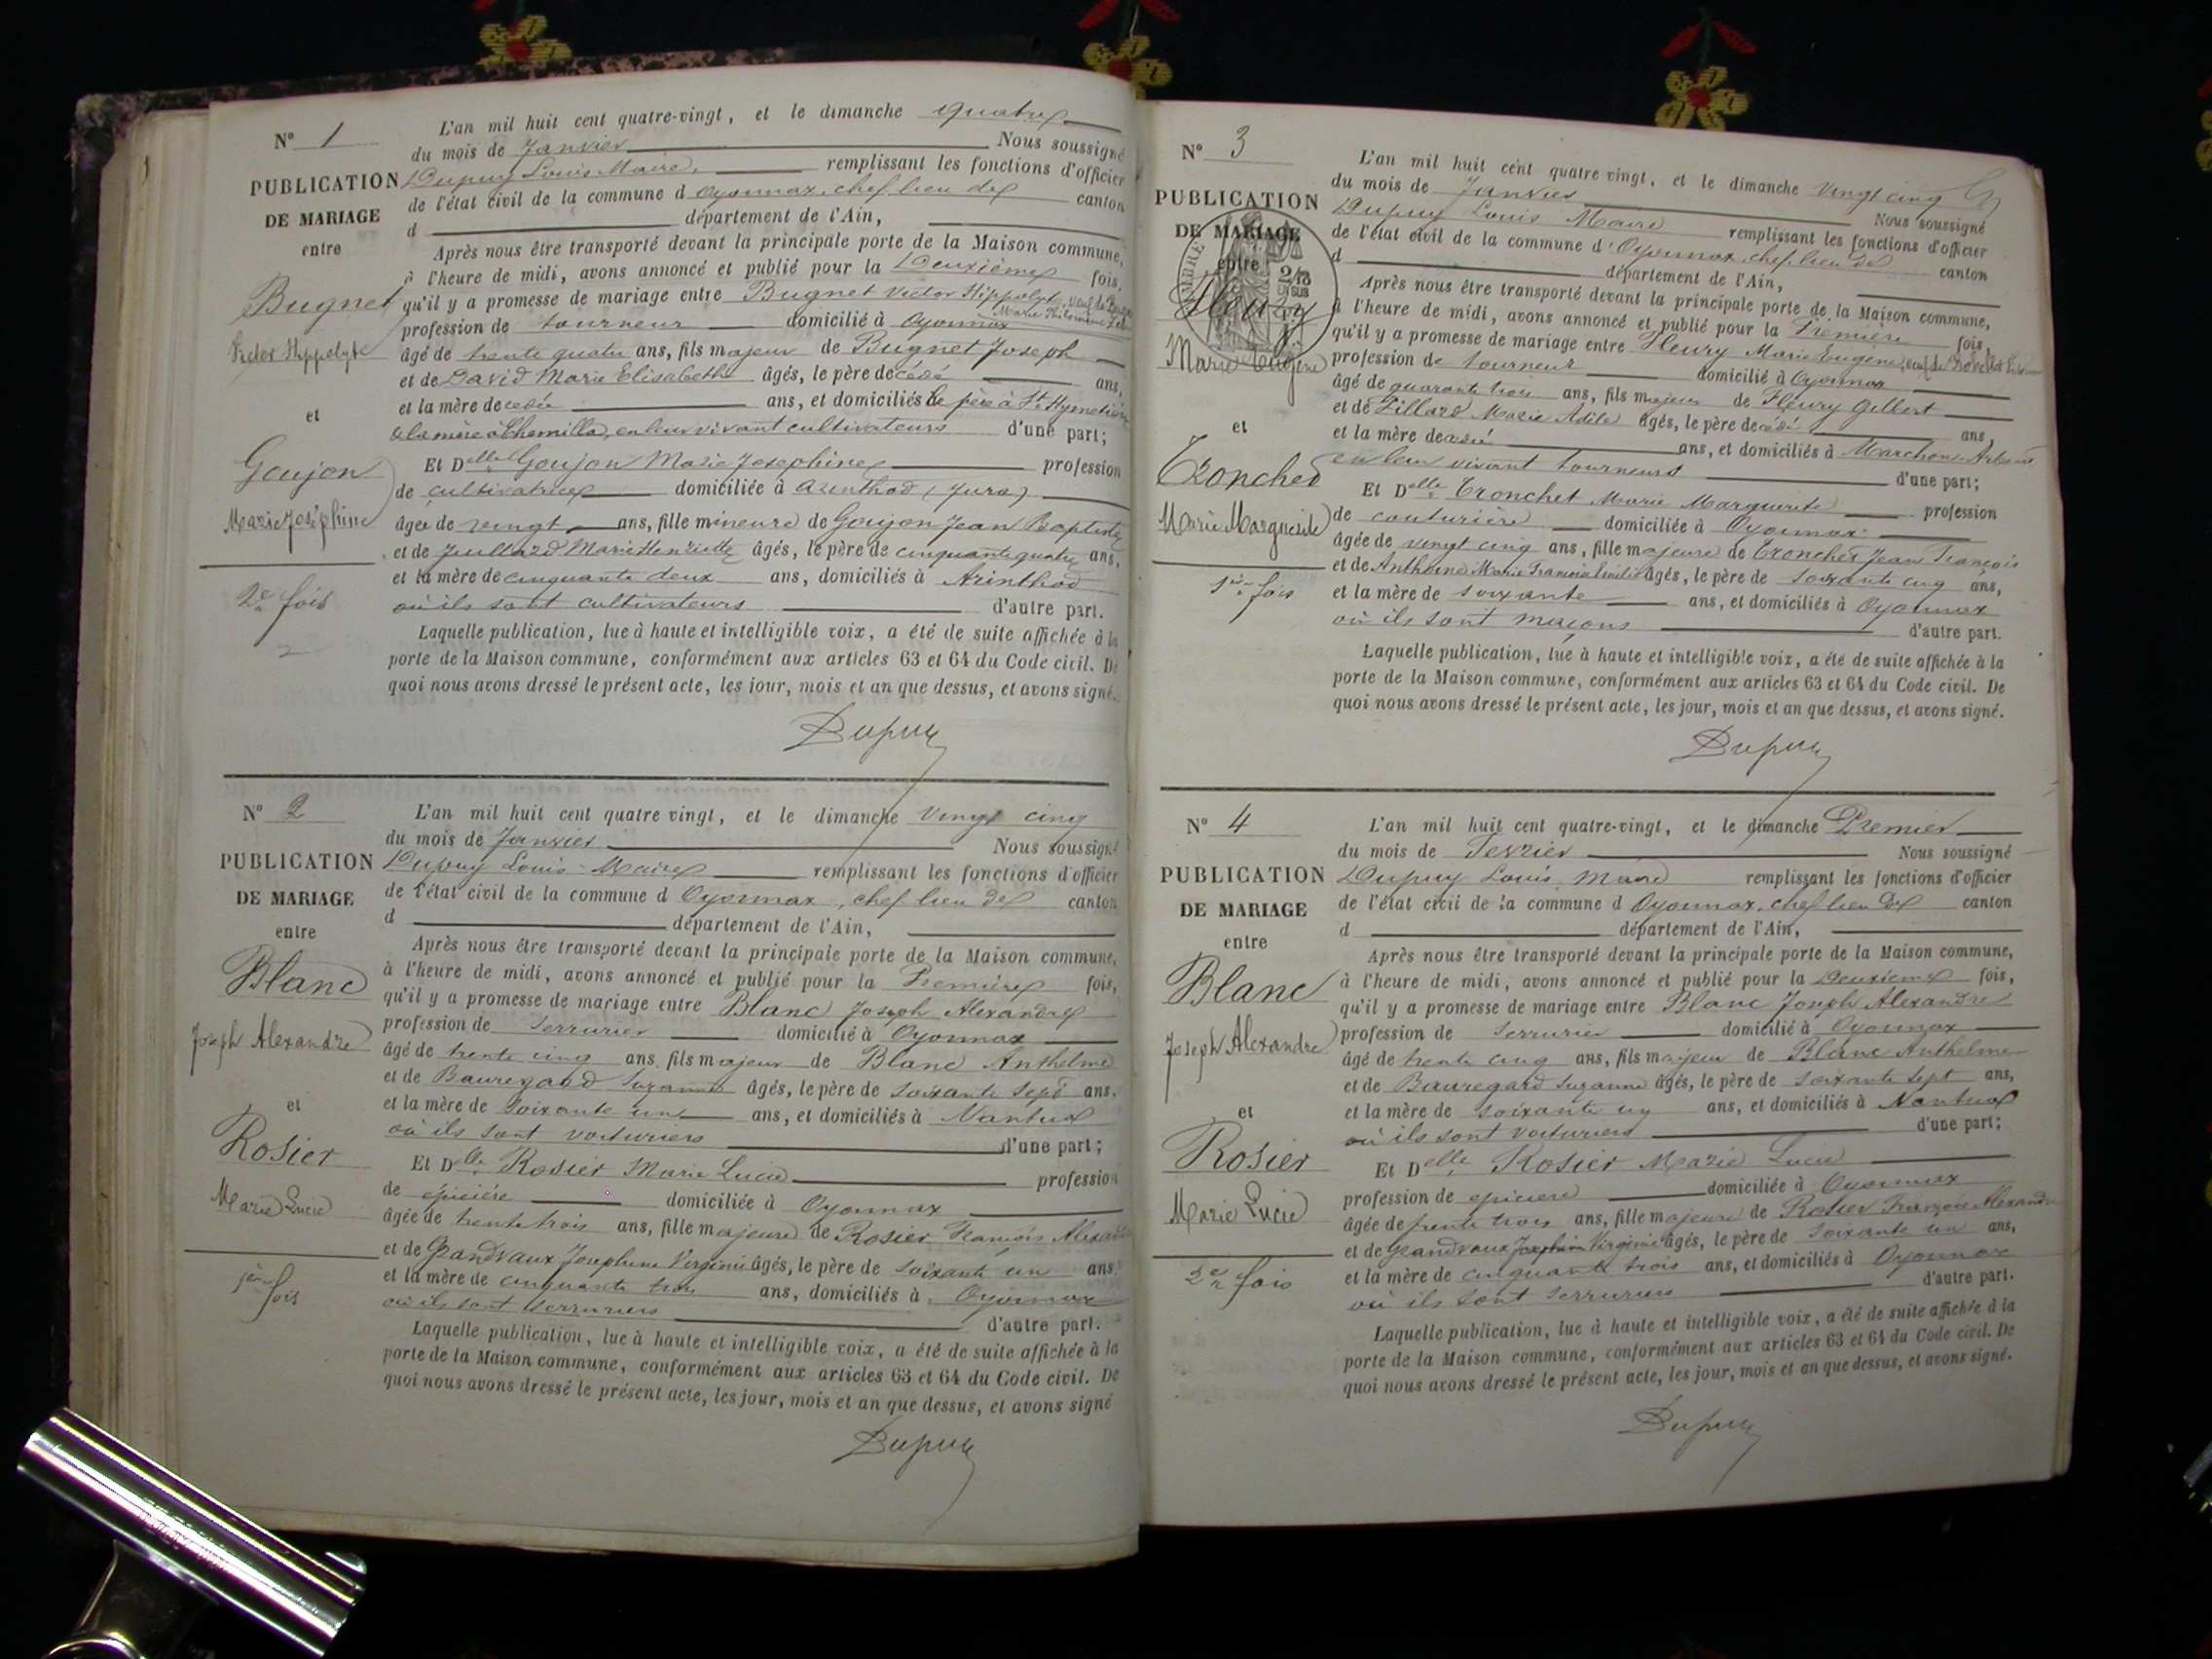 N° 1
PUBLICATION
DE MARIAGE
entre
Bugnet
Victor Hippolyte
et
Goujon
Marie Joséphine
2e fois
L'an mil huit cent quatre-vingt, et le dimanche quatre
du mois de Janvier Nous soussigné
Dupuy Louis Maire, remplissant les fonctions d'officier
de l'état civil de la commune d Oyonnax, chef lieu de canton
d département de l'Ain,
Après nous être transporté devant la principale porte de la Maison commune,
à l'heure de midi, avons annoncé et publié pour la Deuxième fois,
qu'il y a promesse de mariage entre Bugnet Victor Hippolyte, veuf de
Marie Philomène
profession de tourneur domicilié à Oyonnax
âgé de trente quatre ans, fils majeur de Bugnet Joseph
et de David Marie Elisabeth âgés, le père décédé ans,
et la mère decedée ans, et domiciliés le père à St Hymetière
& la mère à Chemilla, en leur vivant cultivateurs d'une part;
Et Delle Goujon Marie Josephine profession
de cultivatrice domiciliée à Arinthod (Jura)
âgée de vingt ans, fille mineure de Goujon Jean Baptiste
et de Juillard Marie Henriette âgés, le père de cinquante quatre ans,
et la mère de cinquante deux ans, domiciliés à Arinthod
où ils sont cultivateurs d'autre part.
Laquelle publication, lue à haute et intelligible voix, a été de suite affichée à la
porte de la Maison commune, conformément aux articles 63 et 64 du Code civil. De
quoi nous avons dressé le présent acte, les jour, mois et an que dessus, et avons signé.
Dupuy
N° 2
PUBLICATION
DE MARIAGE
entre
Blanc
Joseph Alexandre
et
Rosier
Marie Lucie
1ère fois
L'an mil huit cent quatre vingt, et le dimanche vingt cinq
du mois de Janvier Nous soussigné
Dupuy Louis Maire remplissant les fonctions d'officier
de l'état civil de la commune d Oyonnax, chef lieu de canton
d département de l'Ain,
Après nous être transporté devant la principale porte de la Maison commune,
à l'heure de midi, avons annoncé et publié pour la Première fois,
qu'il y a promesse de mariage entre Blanc Joseph Alexandre
profession de serrurier domicilié à Oyonnax
âgé de trente cinq ans, fils majeur de Blanc Anthelme
et de Bauregard Suzanne âgés, le père de soixante sept ans,
et la mère de soixante un ans, et domiciliés à Nantua
où ils sont voituriers d'une part;
Et Dlle Rosier Marie Lucie profession
de épicière domiciliée à Oyonnax
âgée de trente trois ans, fille majeure de Rosier François Alexandre
et de Grandvaux Josephine Virginie âgés, le père de soixante un ans
et la mère de cinquante trois ans, domiciliés à Oyonnax
où ils sont serruriers d'autre part.
Laquelle publication, lue à haute et intelligible voix, a été de suite affichée à la
porte de la Maison commune, conformément aux articles 63 et 64 du Code civil. De
quoi nous avons dressé le présent acte, les jour, mois et an que dessus, et avons signé
Dupuy
N° 3
PUBLICATION
DE MARIAGE
entre
Fleury
Marie Eugène
et
Tronchet
Marie Marguerite
1re fois
L'an mil huit cent quatre vingt, et le dimanche vingt cinq
du mois de Janvier Nous soussigné
Dupuy Louis Maire remplissant les fonctions d'officier
de l'état civil de la commune d'Oyonnax chef lieu de canton
d département de l'Ain,
Après nous être transporté devant la principale porte de la Maison commune,
à l'heure de midi, avons annoncé et publié pour la Première fois,
qu'il y a promesse de mariage entre Fleury Marie Eugène, veuf de
profession de tourneur domicilié à Oyonnax
âgé de quarante trois ans, fils majeur de Fleury Gilbert
et de Fillard Marie Adèle âgés, le père décédé ans,
et la mère decedée ans, et domiciliés à Marchon Arbent
en leur vivant tourneurs d'une part;
Et Delle Tronchet Marie Marguerite profession
de couturière domiciliée à Oyonnax
âgée de vingt cinq ans, fille majeure de Tronchet Jean François
et de Anthoine Marie âgés, le père de soixante cinq ans,
et la mère de soixante ans, et domiciliés à Oyonnax
où ils sont maçons d'autre part.
Laquelle publication, lue à haute et intelligible voix, a été de suite affichée à la
porte de la Maison commune, conformément aux articles 63 et 64 du Code civil. De
quoi nous avons dressé le présent acte, les jour, mois et an que dessus, et avons signé.
Dupuy
N° 4
PUBLICATION
DE MARIAGE
entre
Blanc
Joseph Alexandre
et
Rosier
Marie Lucie
2e fois
L'an mil huit cent quatre-vingt, et le dimanche Premier
du mois de Fevrier Nous soussigné
Dupuy Louis Maire remplissant les fonctions d'officier
de l'état civil de la commune d Oyonnax, chef lieu de canton
d département de l'Ain,
Après nous être transporté devant la principale porte de la Maison commune,
à l'heure de midi, avons annoncé et publié pour la Deuxieme fois,
qu'il y a promesse de mariage entre Blanc Joseph Alexandre
profession de serrurier domicilié à Oyonnax
âgé de trente cinq ans, fils majeur de Blanc Anthelme
et de Bauregard Suzanne âgés, le père de soixante sept ans,
et la mère de soixante un ans, et domiciliés à Nantua
où ils sont voituriers d'une part;
Et Delle Rosier Marie Lucie
profession de epiciere domiciliée à Oyonnax
âgée de trente trois ans, fille majeure de Rosier François Alexandre
et de Grandvaux Josephine Virginie âgés, le père de soixante un ans,
et la mère de cinquante trois ans, et domiciliés à Oyonnax
où ils sont serruriers d'autre part.
Laquelle publication, lue à haute et intelligible voix, a été de suite affichée à la
porte de la Maison commune, conformément aux articles 63 et 64 du Code civil. De
quoi nous avons dressé le présent acte, les jour, mois et an que dessus, et avons signé.
Dupuy